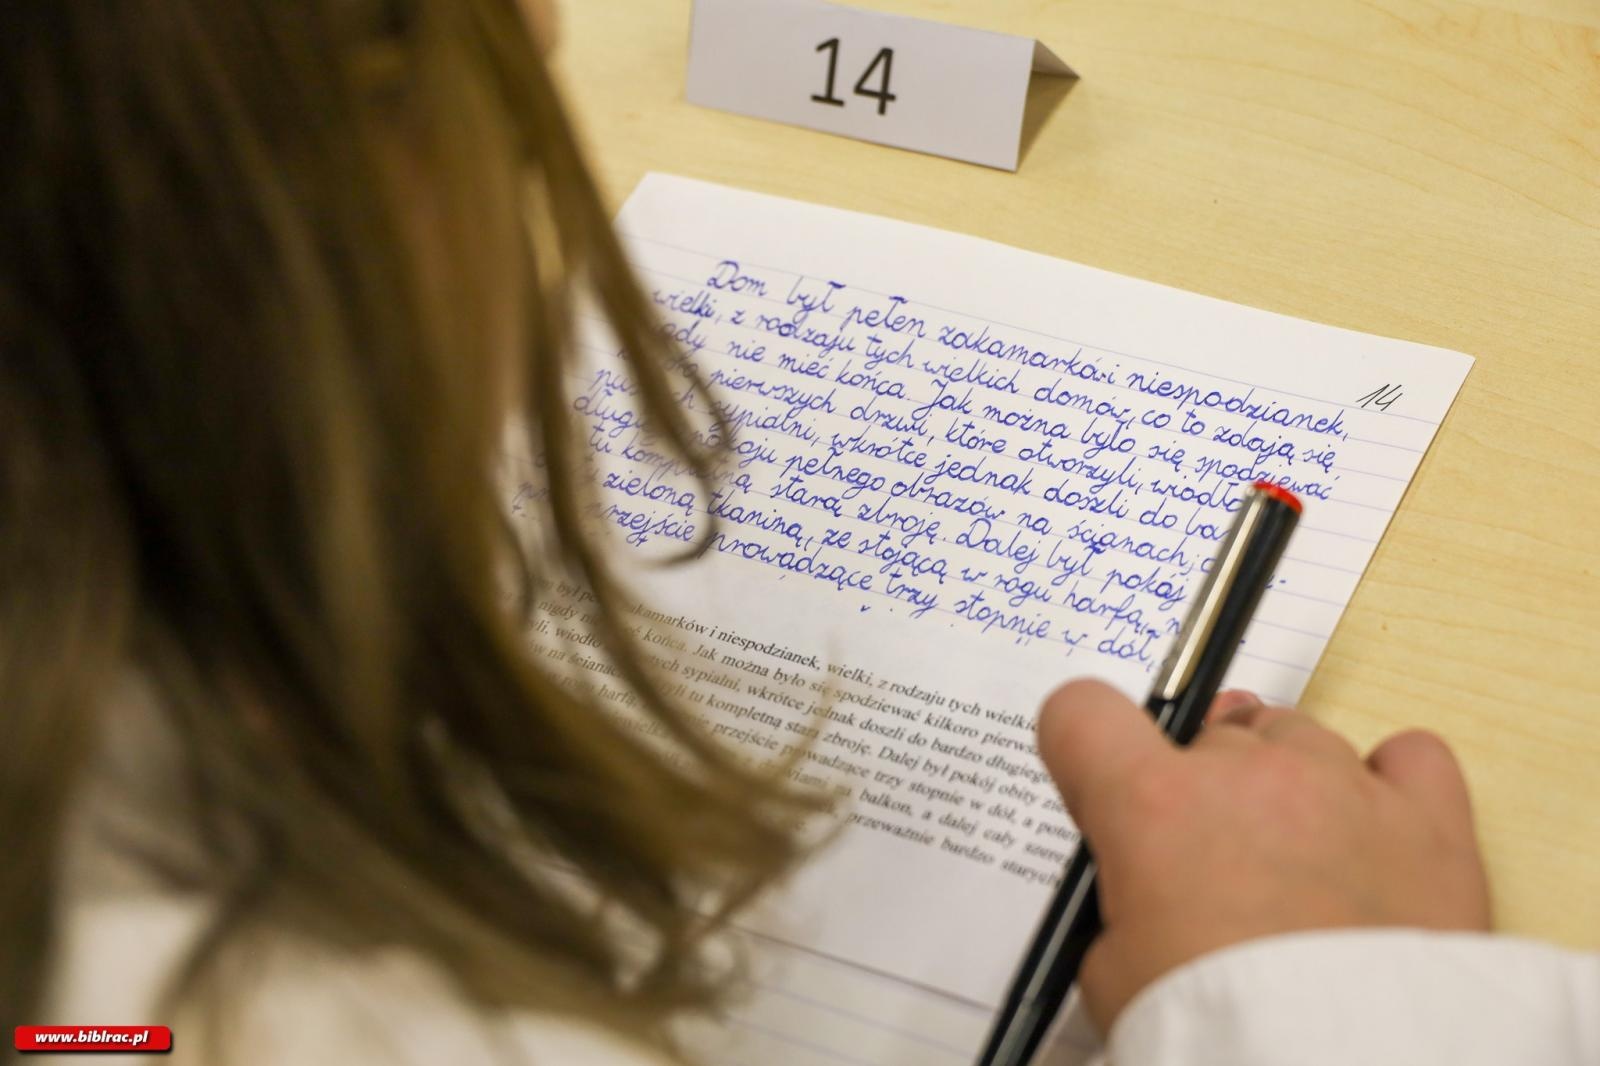 14
14
Dom był pełen zakamarków i niespodzianek,
wielki, z rodzaju tych wielkich domów, co to zdają się
nie mieć końca. Jak można było się spodziewać
pierwszych drzwi, które otworzyli, wiodło
sypialni, wkrótce jednak doszli do ba
pokoju pełnego obrazów na ścianach;
tu kompletną starą zbroję. Dalej był pokój
zieloną tkaniną, ze stojącą w rogu harfą,
przejście prowadzące trzy stopnie w dół,
był zakamarków i niespodzianek, wielki, z rodzaju tych wielkic
nigdy końca. Jak można było się spodziewać kilkoro pierwsz
wiodło sypialni, wkrótce jednak doszli do bardzo długiego
na ścianac tu kompletną starą zbroję. Dalej był pokój obity zie
w rogu harfą, przejście prowadzące trzy stopnie w dół, a poten
drzwiami na balkon, a dalej cały szereg
przeważnie bardzo starych
www.biblrac.pl